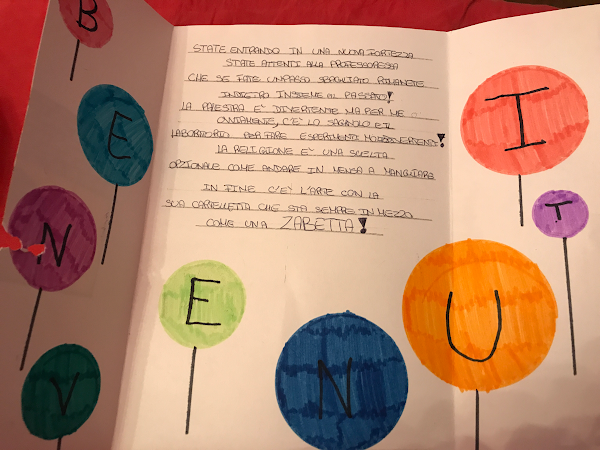 B
E
N
V
E
N
U
T
I
STATE ENTRANDO IN UNA NUOVA FORTEZZA
STATE ATTENTI ALLA PROFESSORESSA
CHE SE FATE UN PASSO SBAGLIATO RIMANETE
INDIETRO INSIEME AL PASSATO!
LA PALESTRA E' DIVERTENTE MA PER ME
OVVIAMENTE, C'E' LO SPAGNOLO E IL
LABORATORIO PER FARE ESPERIMENTI MOLTO DIVERTENTI!
LA RELIGIONE E' UNA SCELTA
OPZIONALE COME ANDARE IN MENSA A MANGIARE
IN FINE C'E' L'ARTE CON LA
SUA CARTELLETTA CHE STA SEMPRE IN MEZZO
COME UNA ZABETTA!